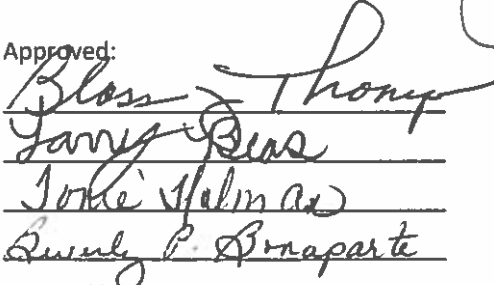 Approved:
Bloss Thomp
Larry Beas
Tomé Holman
Beverly P. Bonaparte